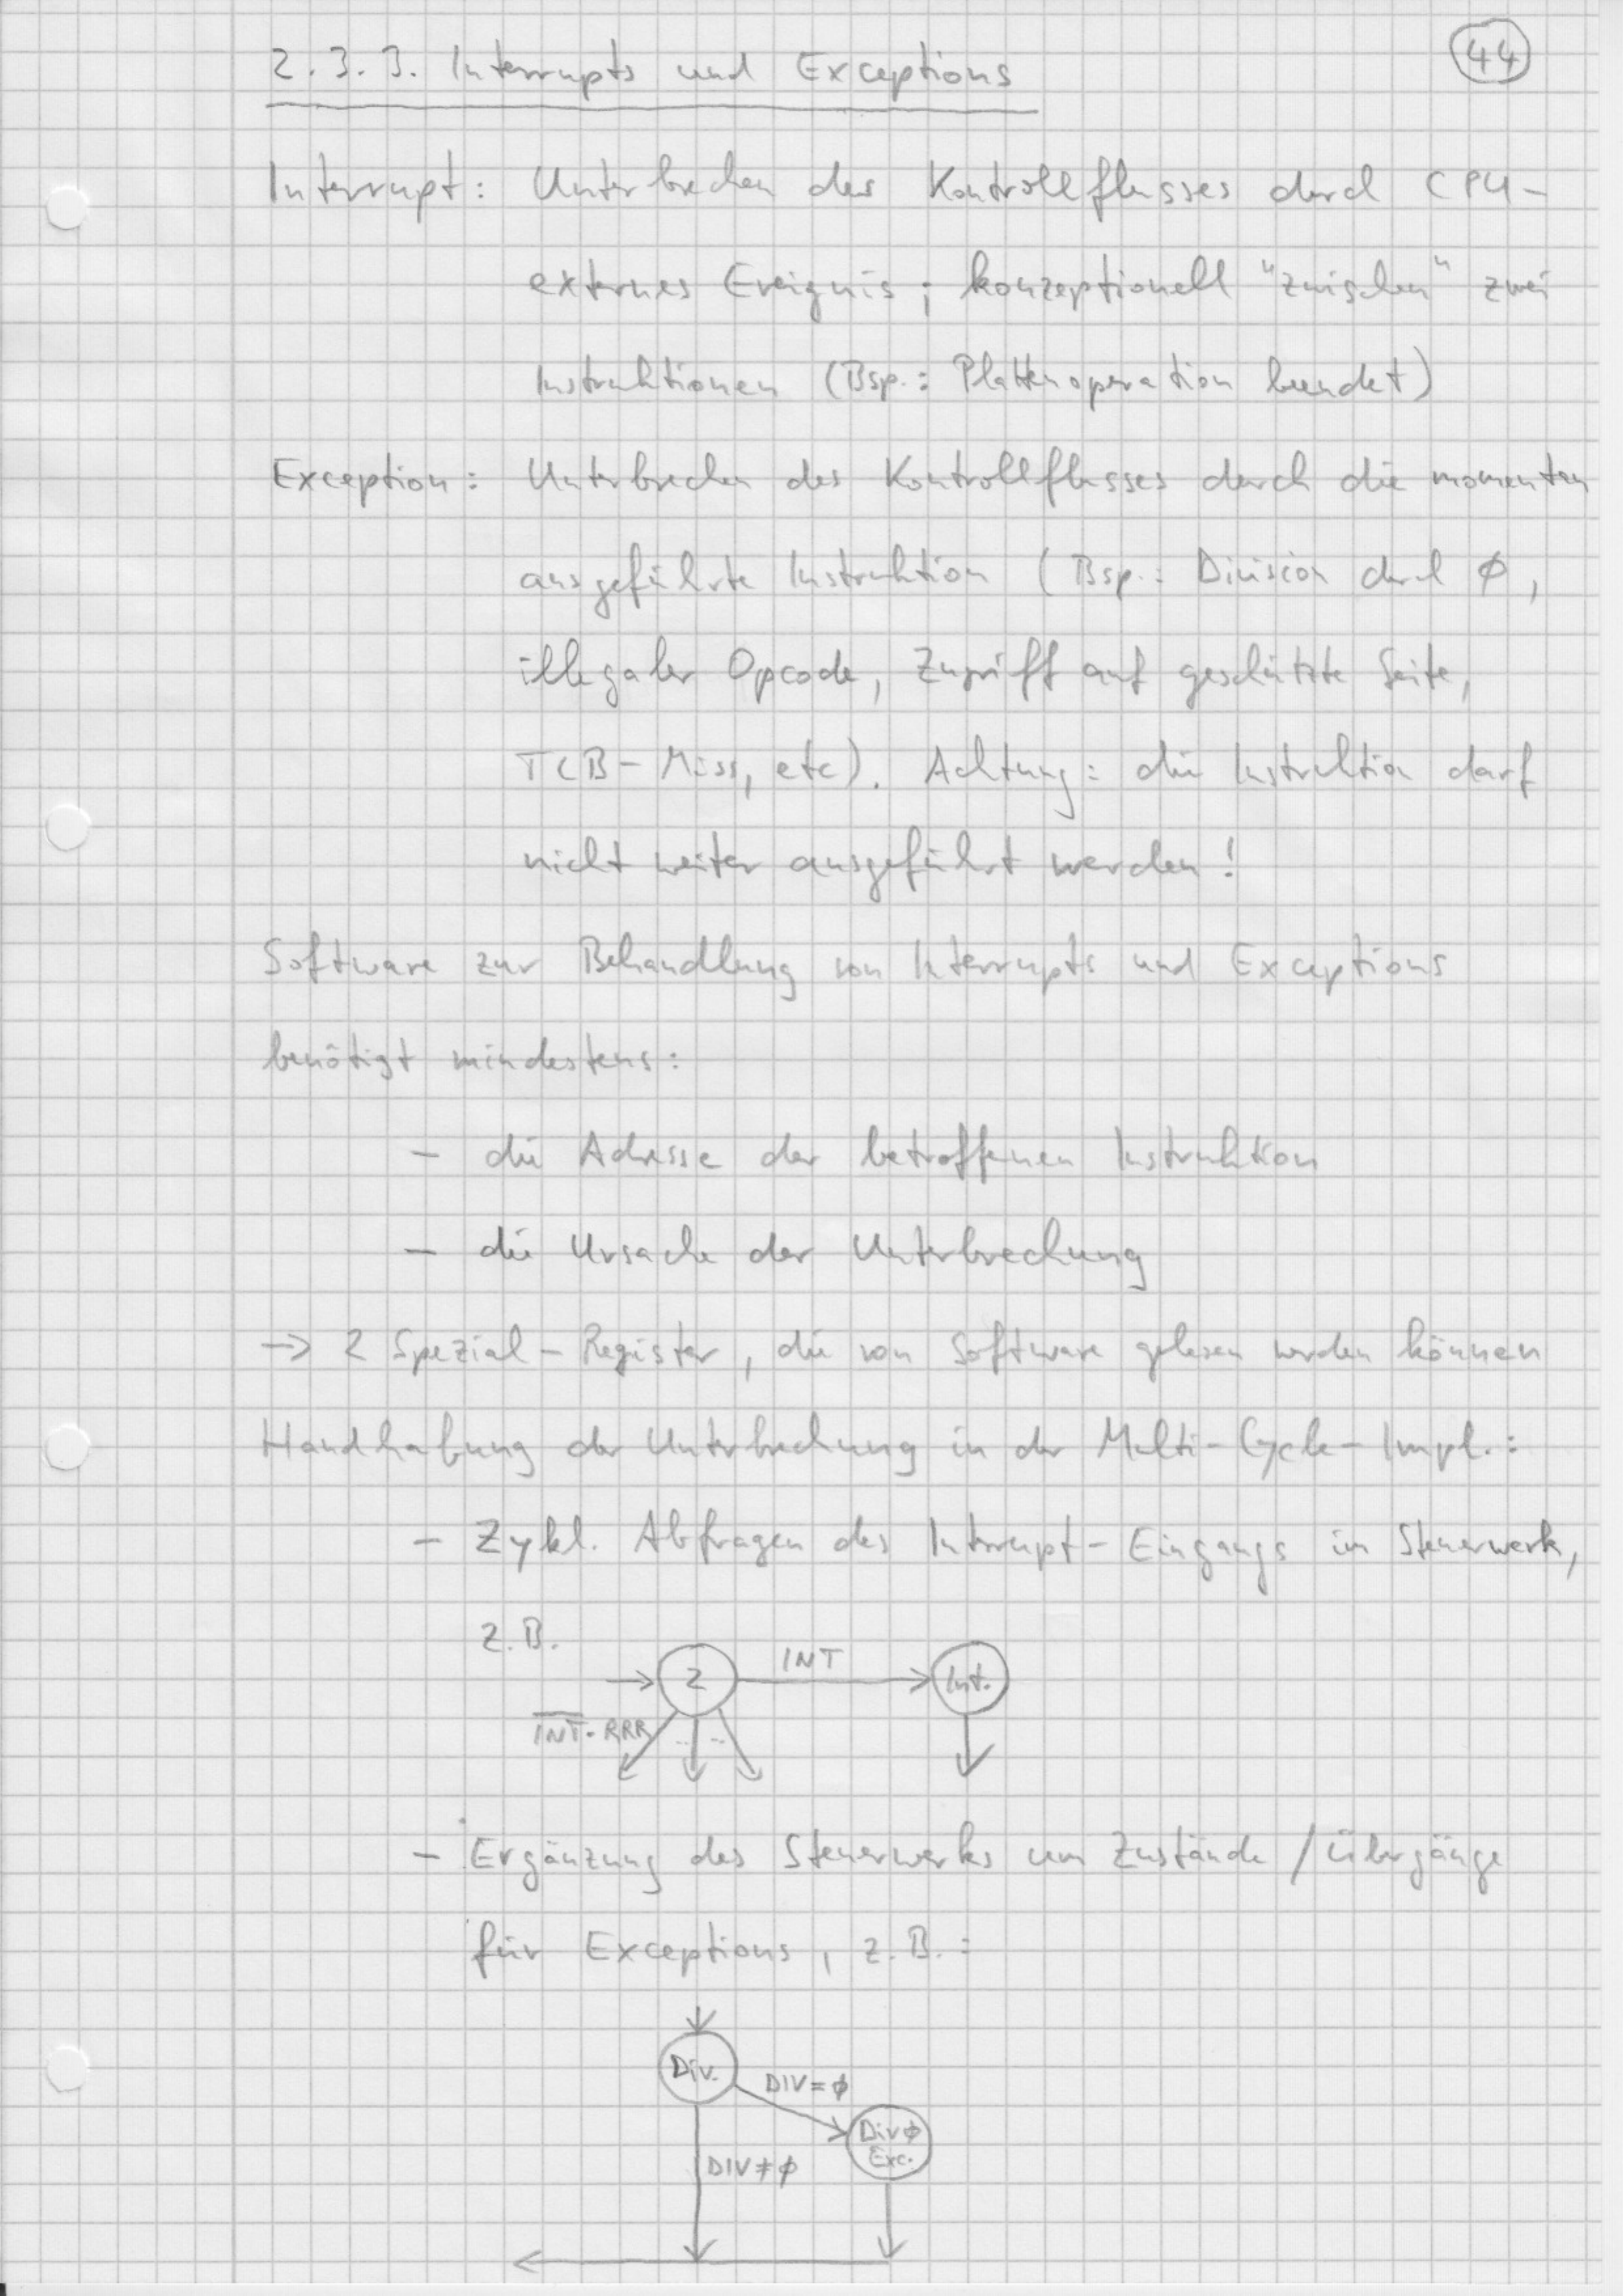 44
2.3.3. Interrupts und Exceptions
Interrupt: Unterbrechen des Kontrollflusses durch CPU-
externes Ereignis; konzeptionell "zwischen" zwei
Instruktionen (Bsp.: Plattenoperation beendet)
Exception: Unterbrechen des Kontrollflusses durch die momentan
ausgeführte Instruktion (Bsp.: Division durch ∅,
illegaler Opcode, Zugriff auf geschützte Seite,
TLB-Miss, etc). Achtung: die Instruktion darf
nicht weiter ausgeführt werden!
Software zur Behandlung von Interrupts und Exceptions
benötigt mindestens:
- die Adresse der betroffenen Instruktion
- die Ursache der Unterbrechung
→ 2 Spezial-Register, die von Software gelesen werden können
Handhabung der Unterbrechung in der Multi-Cycle-Impl.:
- Zykl. Abfragen des Interrupt-Eingangs im Steuerwerk,
z.B.
2 INT Int.
I̅N̅T̅·RRR ... ...
- Ergänzung des Steuerwerks um Zustände / Übergänge
für Exceptions, z.B.:
Div.
DIV=∅
Div∅
Exc.
DIV≠∅